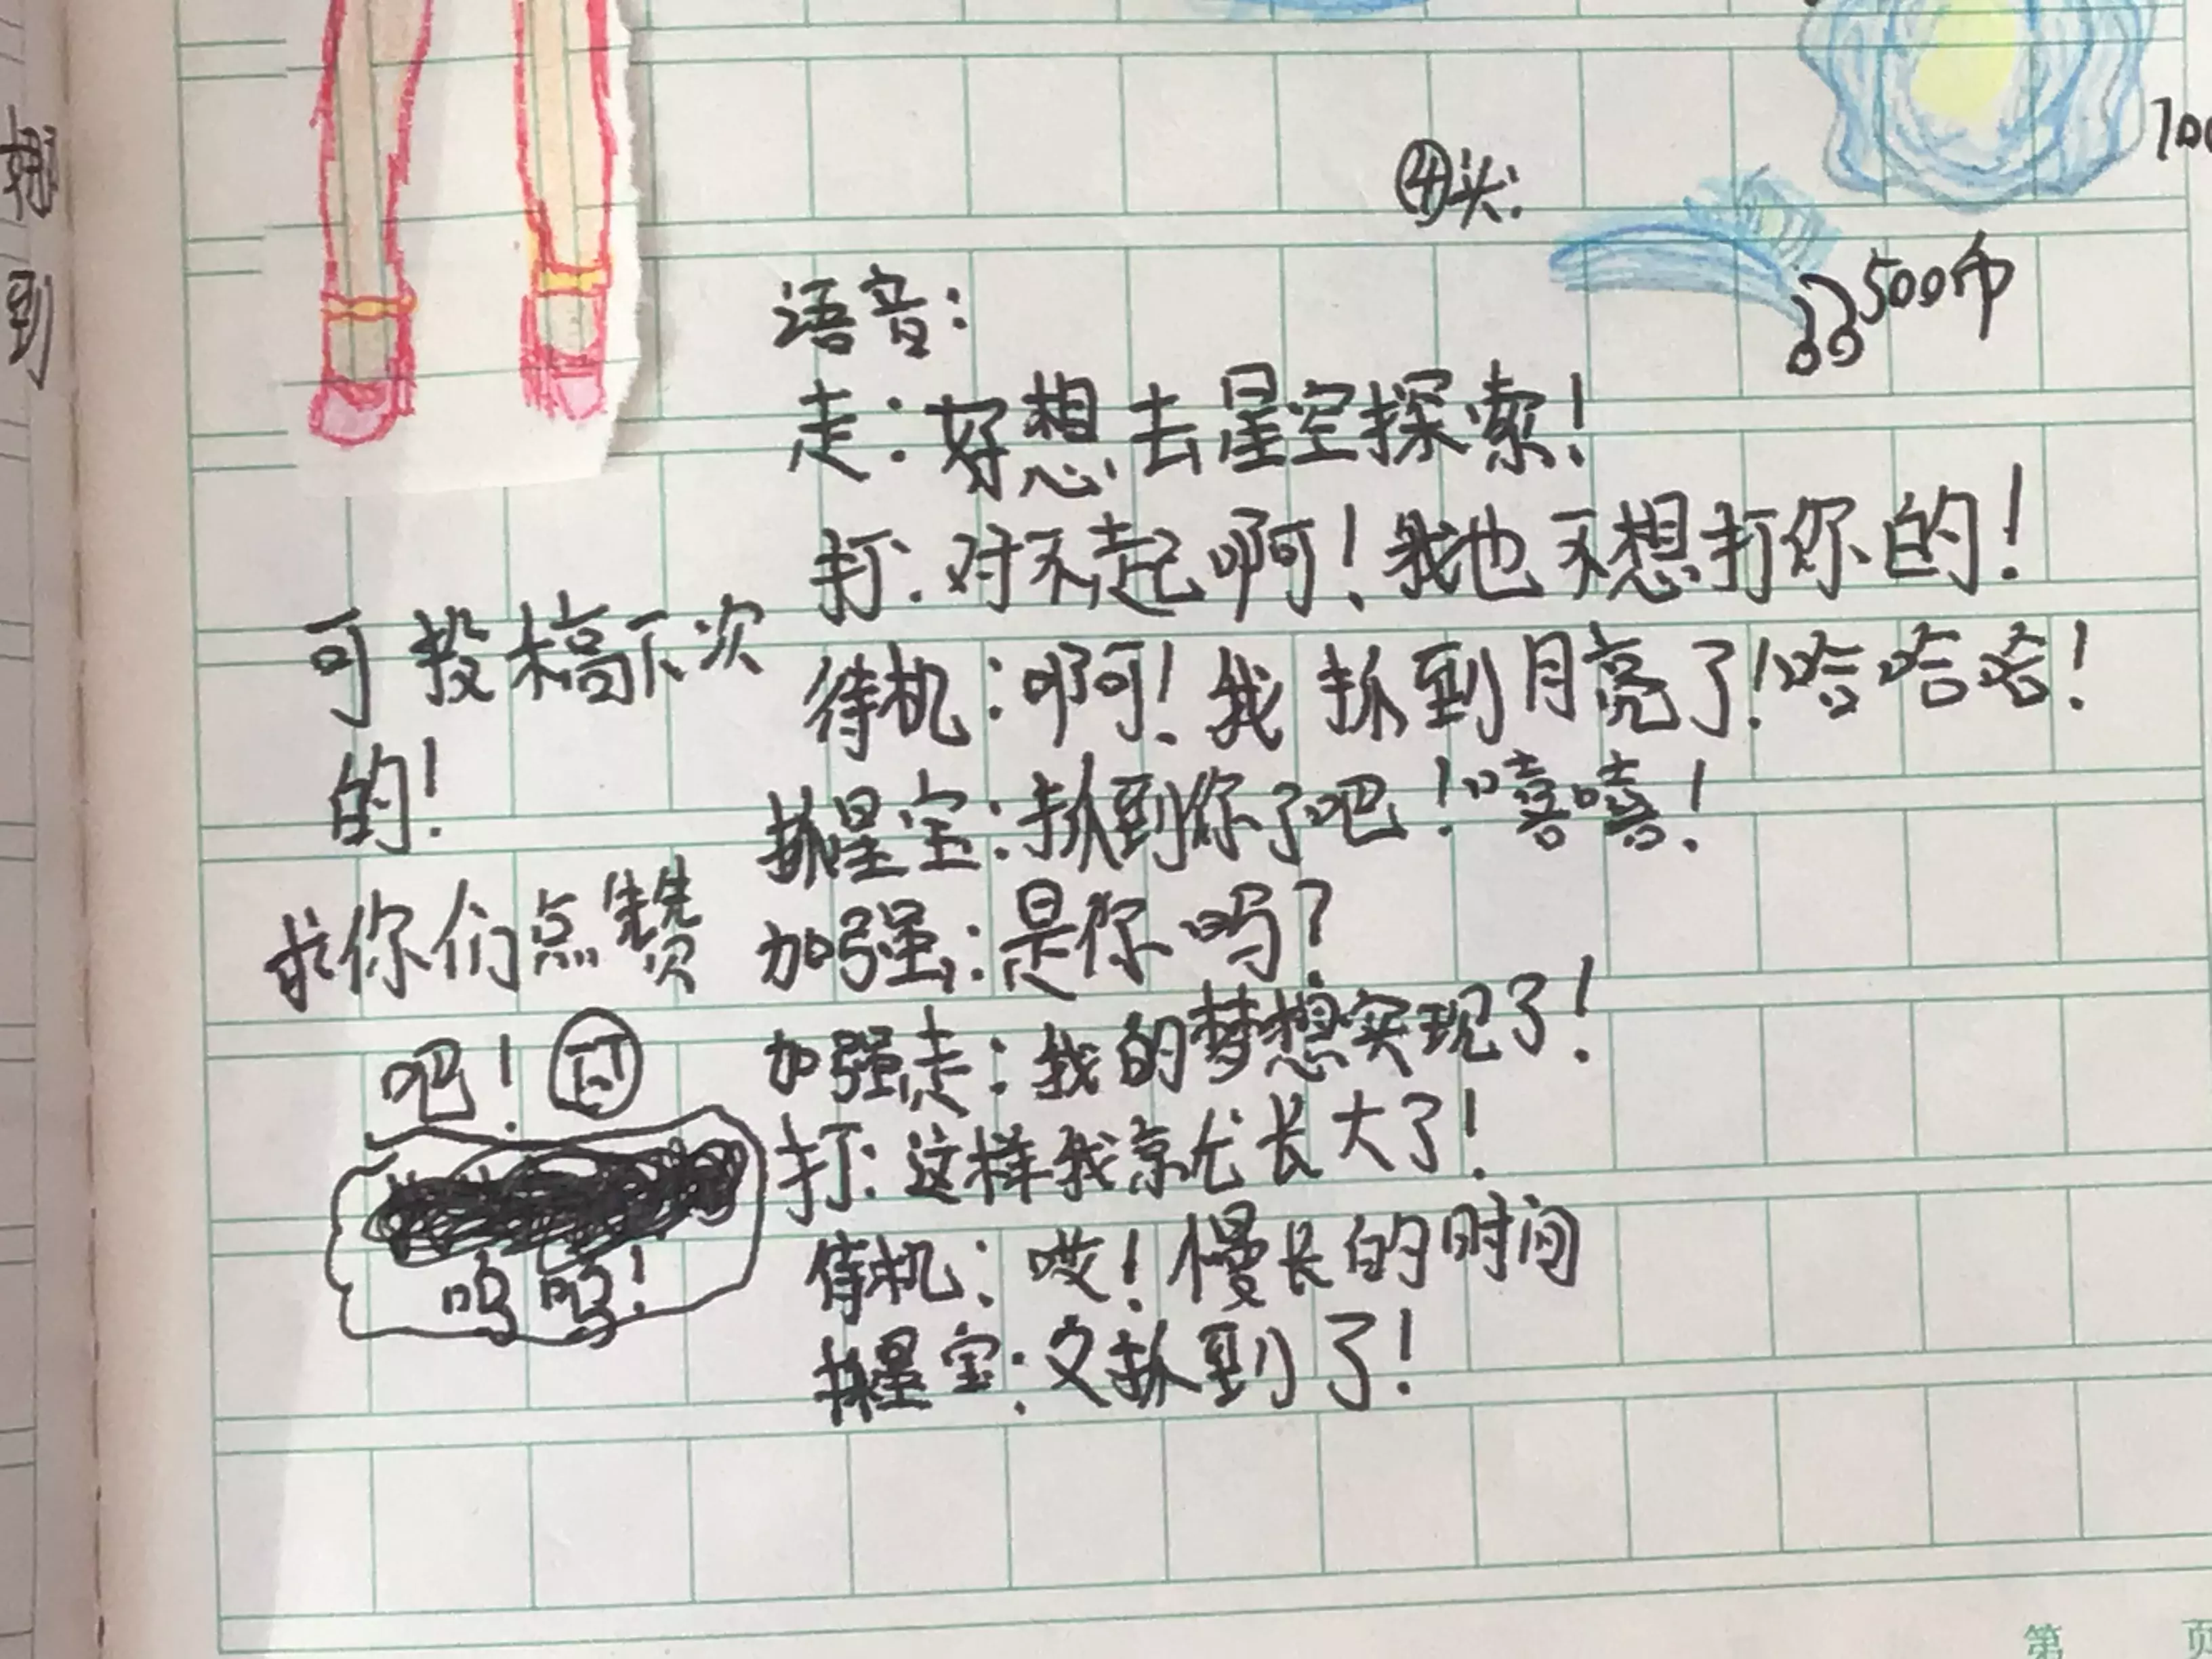 ④头:
100
500币
语音:
走:好想去星空探索!
打:对不起啊!我也不想打你的!
待机:啊!我抓到月亮了!哈哈哈!
抓星宝:抓到你了吧!嘻嘻!
加强:是你吗?
加强走:我的梦想实现了!
打:这样我就长大了!
待机:哎!慢长的时间
抓星宝:又抓到了!
可投稿下次
的!
求你们点赞
吧!
呜呜!
到
第 页